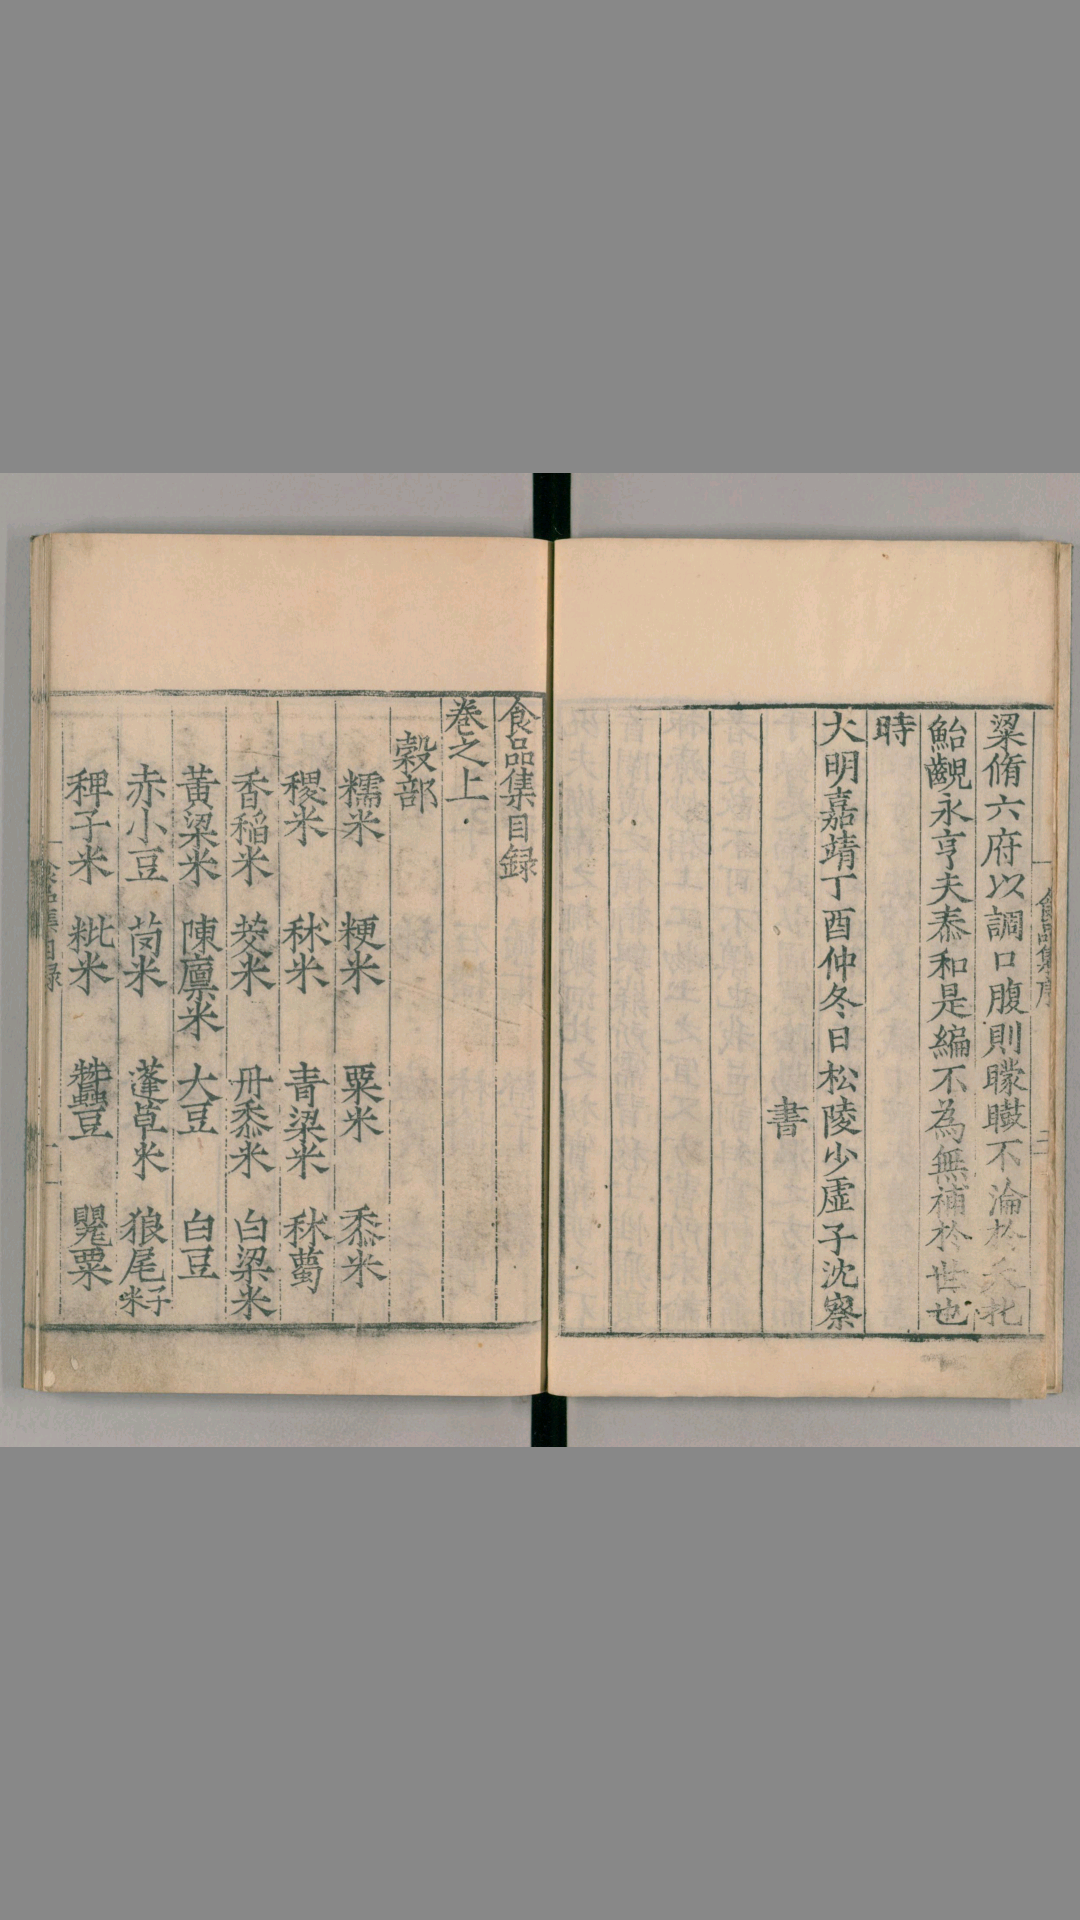 粱脩六府以調口腹則矇瞽不淪於夭札
鮐齯永亨夫泰和是編不為無補於世也
時
大明嘉靖丁酉仲冬日松陵少虛子沈察
書
食品集目録
卷之上
穀部
糯米 粳米 粟米 黍米
稷米 秫米 青粱米 秫薥
香稻米 茭米 丹黍米 白粱米
黃粱米 陳廩米 大豆 白豆
赤小豆 䒳米 蓬草米 狼尾米子
稗子米 粃米 蠶豆 甖粟
食品集目録